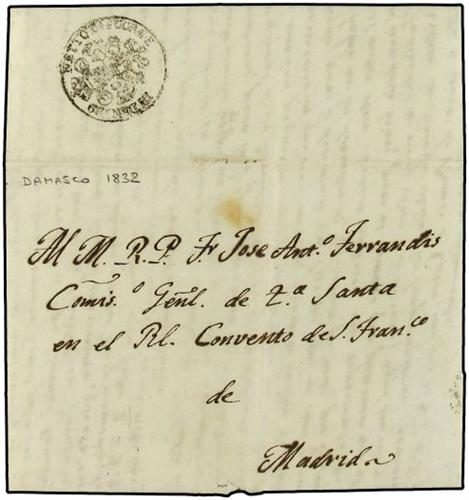 NETTO
DAMASCO 1832
Al M. R. P. Fr Jose Ant.º Ferrandis
Comis.º Gen̄l. de T.ª Santa
en el Rl. Convento de S. Fran.co
de
Madrid